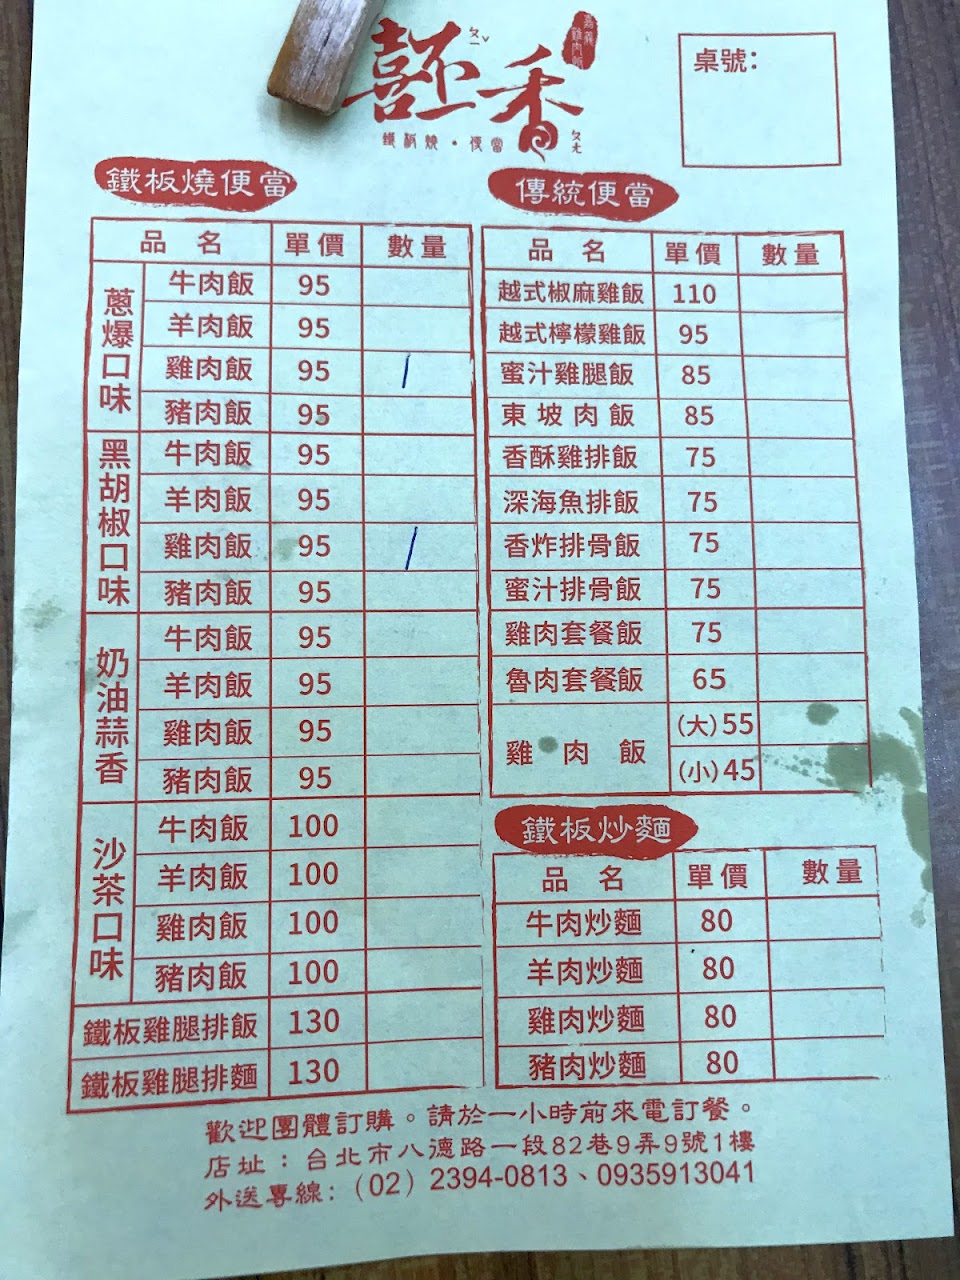 喜丕香
ㄆㄧˇ
ㄆㄤ
嘉義雞肉飯
鐵板燒・便當
桌號：
鐵板燒便當
品名 單價 數量
蔥爆口味
牛肉飯 95
羊肉飯 95
雞肉飯 95 /
豬肉飯 95
黑胡椒口味
牛肉飯 95
羊肉飯 95
雞肉飯 95 /
豬肉飯 95
奶油蒜香
牛肉飯 95
羊肉飯 95
雞肉飯 95
豬肉飯 95
沙茶口味
牛肉飯 100
羊肉飯 100
雞肉飯 100
豬肉飯 100
鐵板雞腿排飯 130
鐵板雞腿排麵 130
傳統便當
品名 單價 數量
越式椒麻雞飯 110
越式檸檬雞飯 95
蜜汁雞腿飯 85
東坡肉飯 85
香酥雞排飯 75
深海魚排飯 75
香炸排骨飯 75
蜜汁排骨飯 75
雞肉套餐飯 75
魯肉套餐飯 65
雞肉飯 (大)55
(小)45
鐵板炒麵
品名 單價 數量
牛肉炒麵 80
羊肉炒麵 80
雞肉炒麵 80
豬肉炒麵 80
歡迎團體訂購。請於一小時前來電訂餐。
店址：台北市八德路一段82巷9弄9號1樓
外送專線：(02) 2394-0813、0935913041